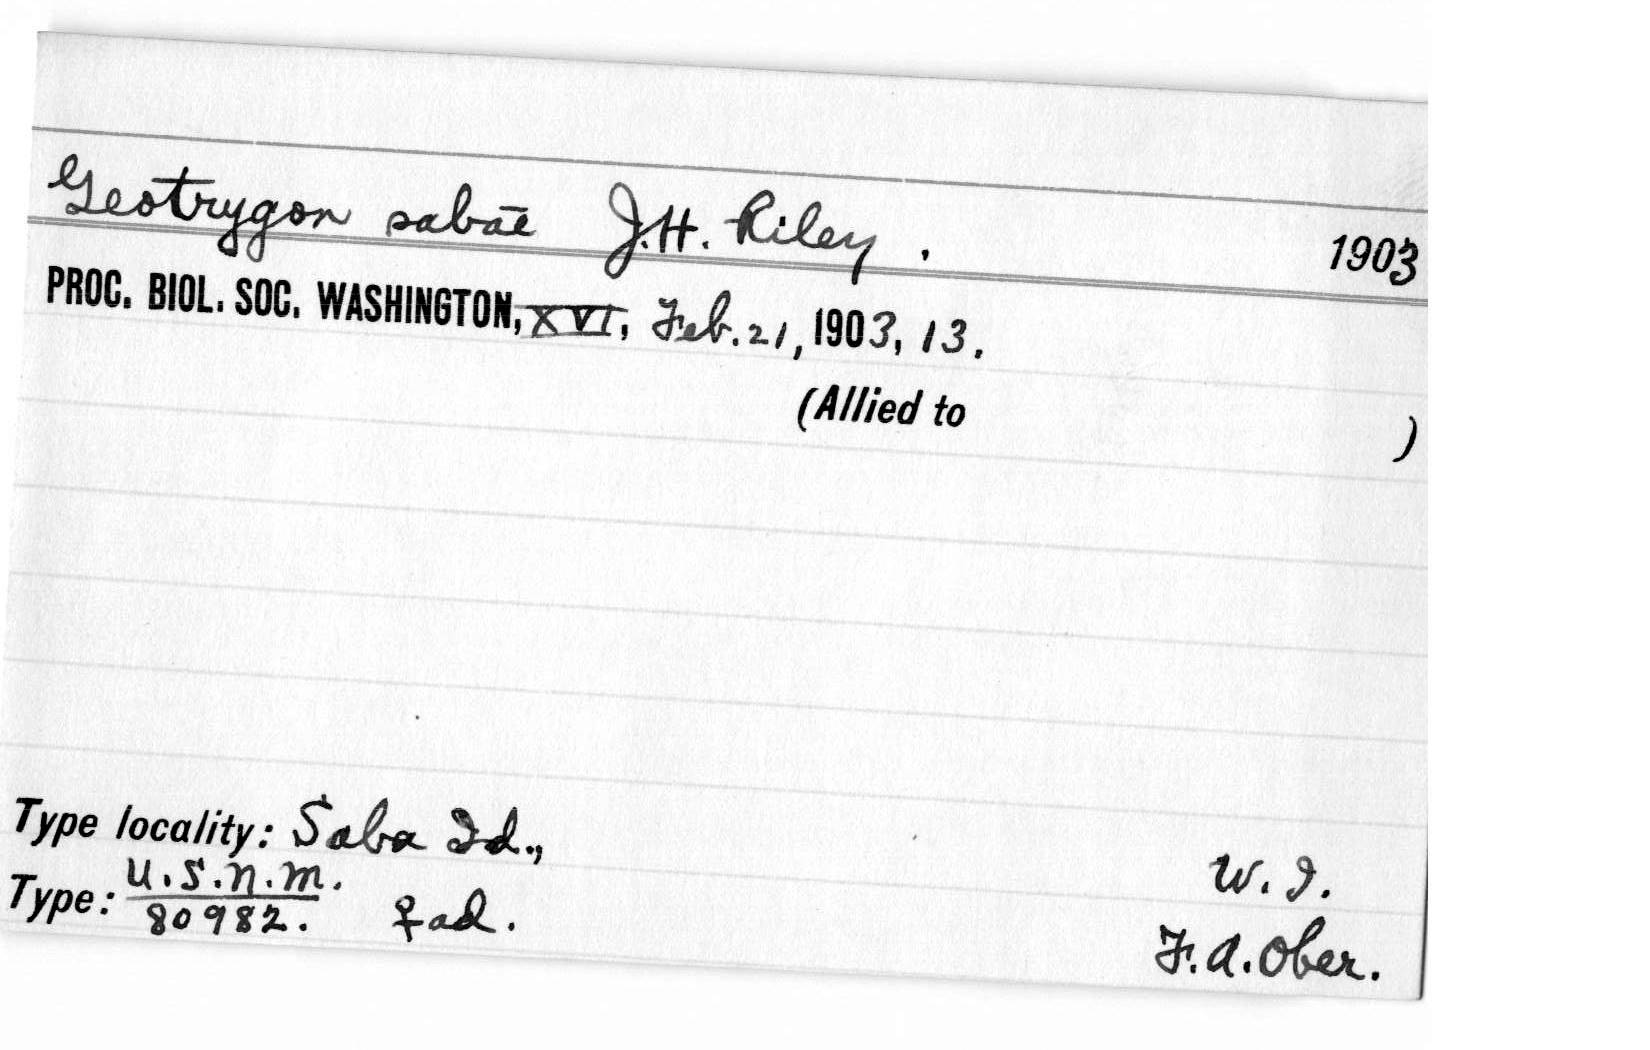 Geotrygon sabæ J.H. Riley. 1903
PROC. BIOL. SOC. WASHINGTON, XVI, Feb. 21, 1903, 13.
(Allied to )
Type locality: Saba Id., W. I.
Type: U.S.N.M. 80982. ♀ ad. F. A. Ober.